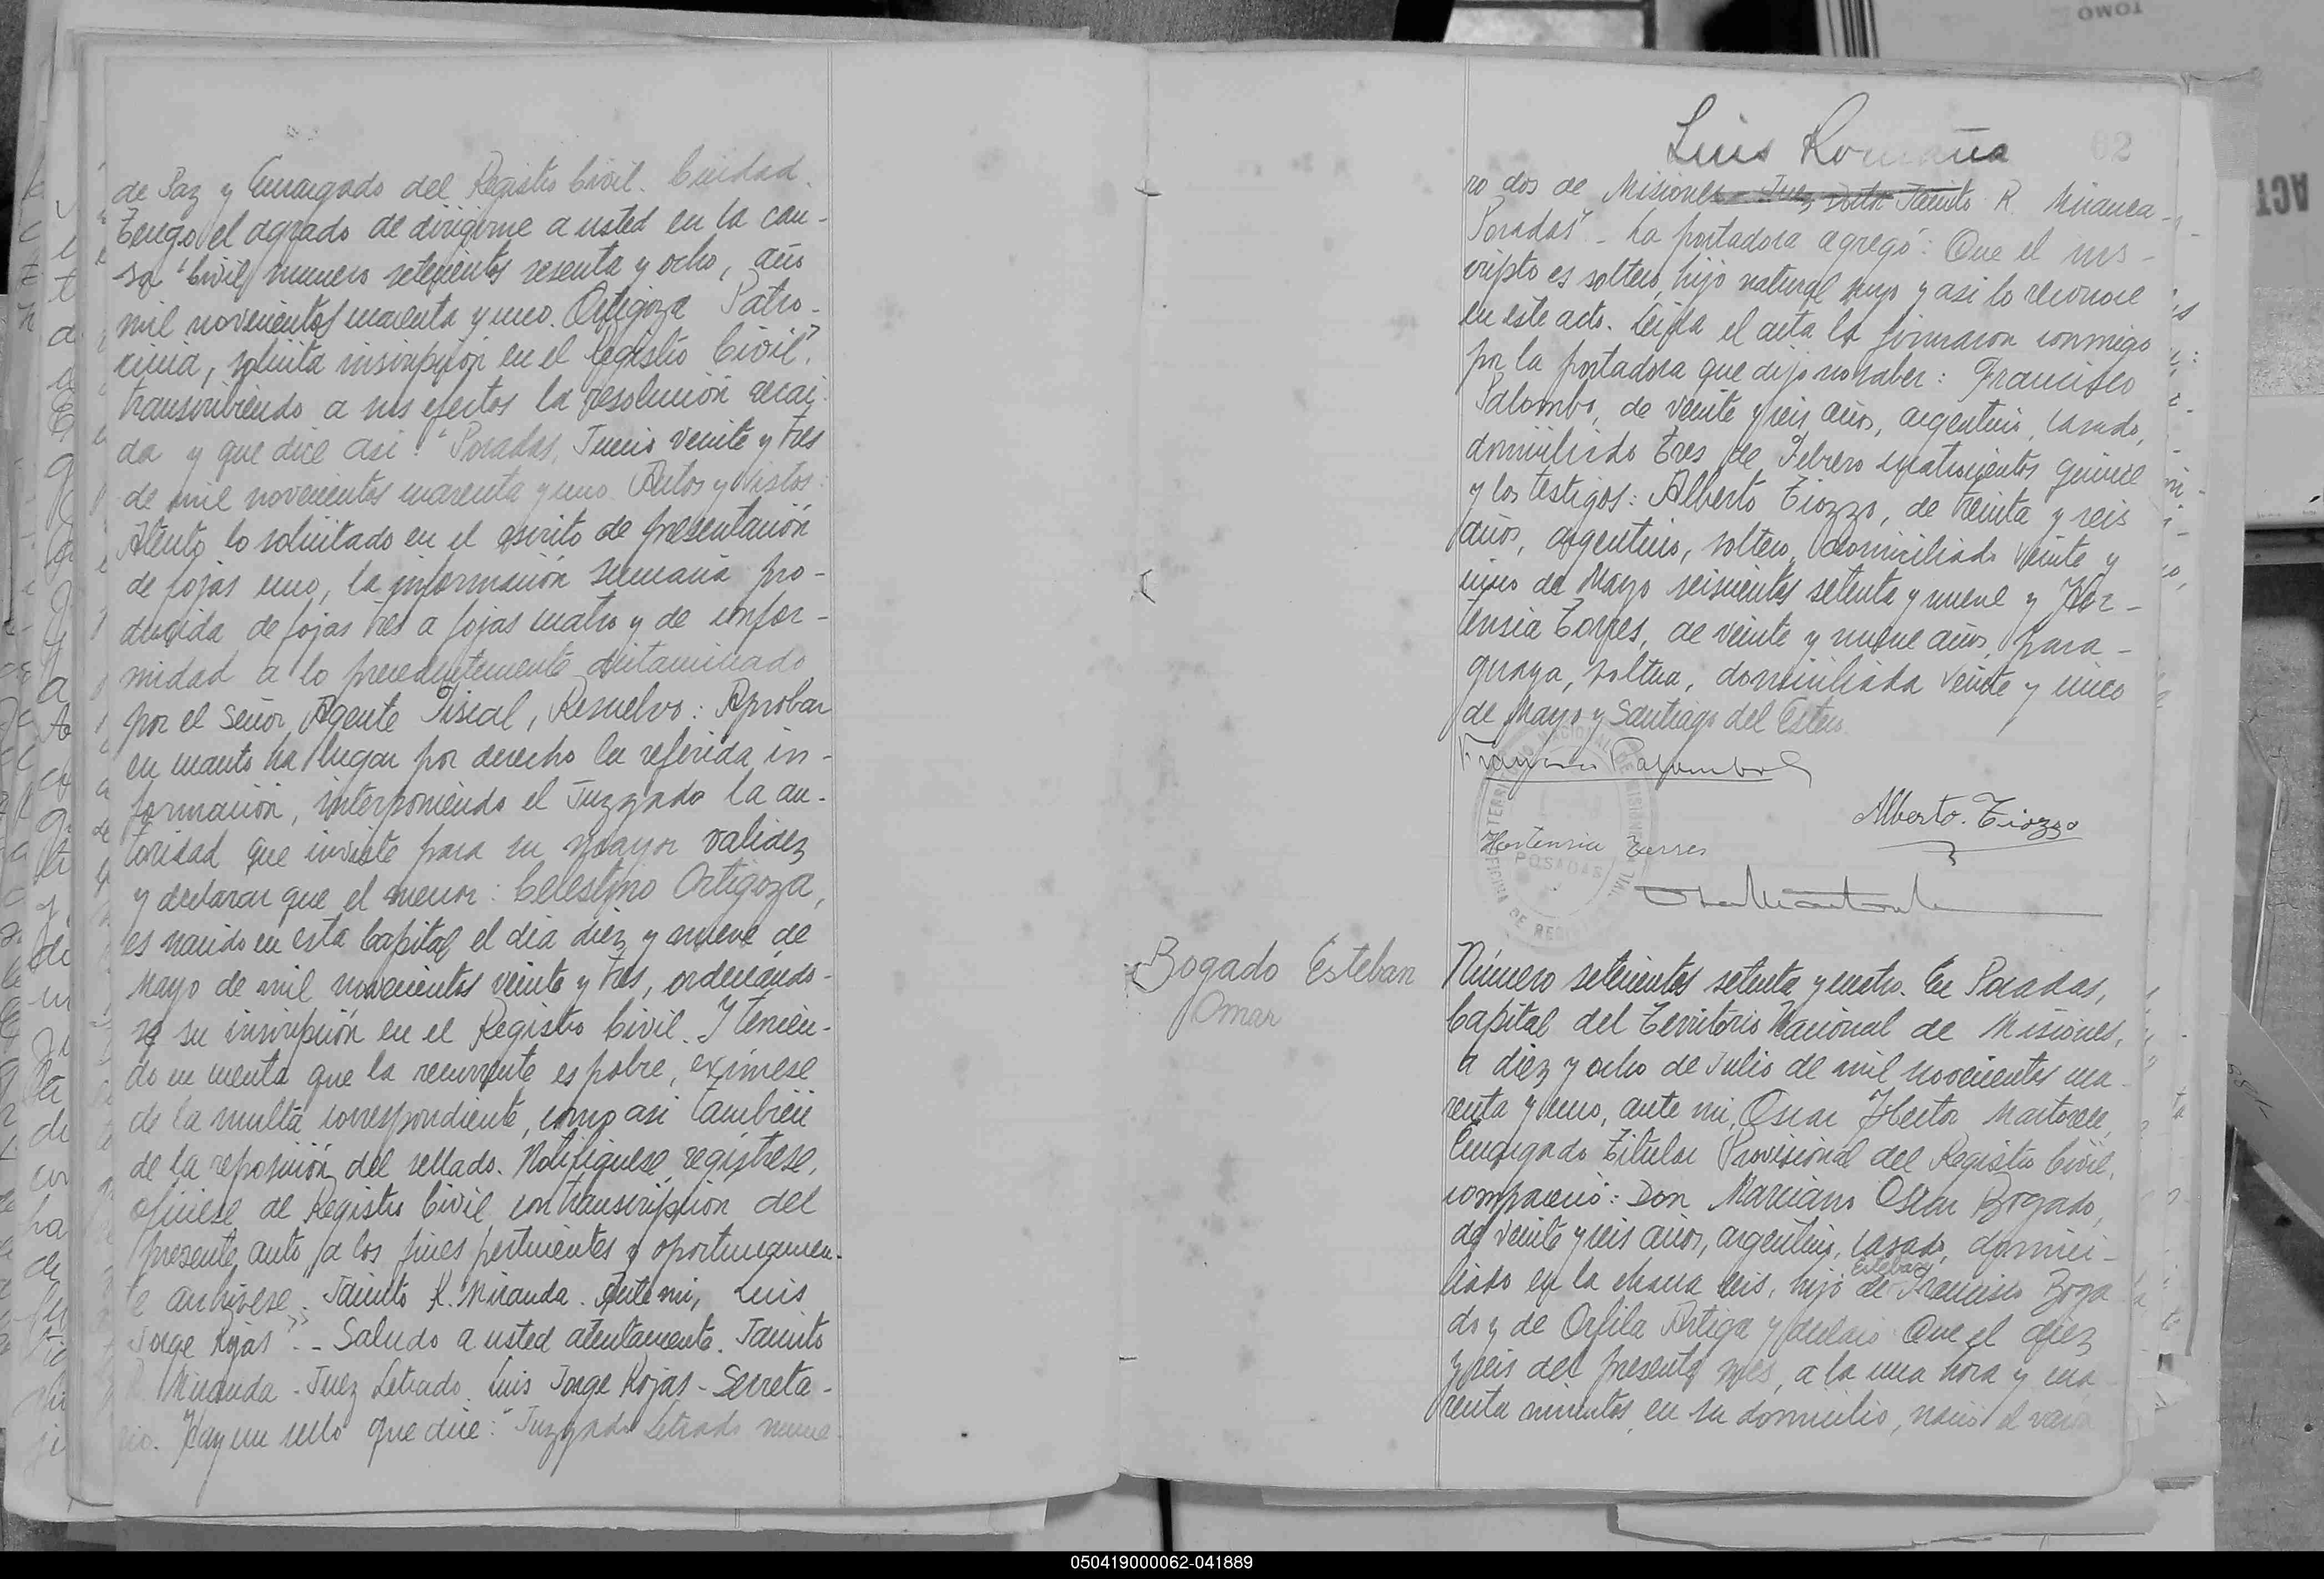 de Paz y Encargado del Registro Civil. Ciudad.
Tengo el agrado de dirigirme a usted en la cau-
sa "Civil numero setecientos sesenta y ocho, año
mil novecientos cuarenta y uno. Ortigoza Patro-
cinia, solicita inscripción en el Registro Civil",
transcribiendo a sus efectos la resolución recai-
da y que dice asi: "Posadas, Junio veinte y tres
de mil novecientos cuarenta y uno. Autos y Vistos:
Atento lo solicitado en el escrito de presentación
de fojas uno, la información sumaria pro-
ducida de fojas tres a fojas cuatro y de confor-
midad a lo precedentemente dictaminado
por el Señor Agente Fiscal, Resuelvo: Aprobar
en cuanto ha lugar por derecho la referida in-
formación, interponiendo el Juzgado la au-
toridad que inviste para su mayor validez
y declarar que el menor: Celestino Ortigoza,
es nacido en esta Capital el dia diez y nueve de
Mayo de mil novecientos veinte y tres, ordenándo-
se su inscripción en el Registro Civil. Y tenien-
do en cuenta que la recurrente es pobre, exímese
de la multa correspondiente, como asi tambien
de la reposición del sellado. Notifiquese, registrese,
ofíciese al Registro Civil, con transcripción del
presente auto, a los fines pertinentes y oportunamen-
te archivese". Jacinto R. Miranda. Ante mi, Luis
Jorge Rojas".- Saludo a usted atentamente. Jacinto
R. Miranda - Juez Letrado. Luis Jorge Rojas - Secreta-
rio. Hay un sello que dice: "Juzgado Letrado nume-
Luis Romaña
02
ro dos de Misiones Juez Doctor Jacinto R. Miranda -
Posadas" - La portadora agregó: Que el ins-
cripto es soltero, hijo natural suyo y asi lo reconoce
en este acto. Leida el acta la firmaron conmigo
por la portadora que dijo no saber: Francisco
Palombo, de veinte y seis años, argentino, casado,
domiciliado Tres de Febrero cuatrocientos quince
y los testigos: Alberto Tiozzo, de treinta y seis
años, argentino, soltero, domiciliado Veinte y
cinco de Mayo seiscientos setenta y nueve y Hor-
tensia Torres, de veinte y nueve años, para-
guaya, soltera, domiciliada Veinte y cinco
de Mayo y Santiago del Estero.
Alberto. Tiozzo
Hortensia Torres
TERRITORIO NACIONAL DE MISIONES
POSADAS
OFICINA DE REGISTRO CIVIL
Bogado Esteban
Omar
Número setecientos setenta y cuatro. En Posadas,
Capital del Territorio Nacional de Misiones,
a diez y ocho de Julio de mil novecientos cua-
renta y uno, ante mi, Oscar Hector Martorell,
Encargado Titular Provisional del Registro Civil,
compareció: Don Marciano Oscar Bogado,
de veinte y seis años, argentino, casado, domici-
Esteban
liado en la chacra seis, hijo de Francisco Boga
do y de Orfila Artiga y declaró: Que el diez
y seis del presente mes, a la una hora y cua
renta minutos, en su domicilio, nació el varon
TOMO
ACT
050419000062-041889